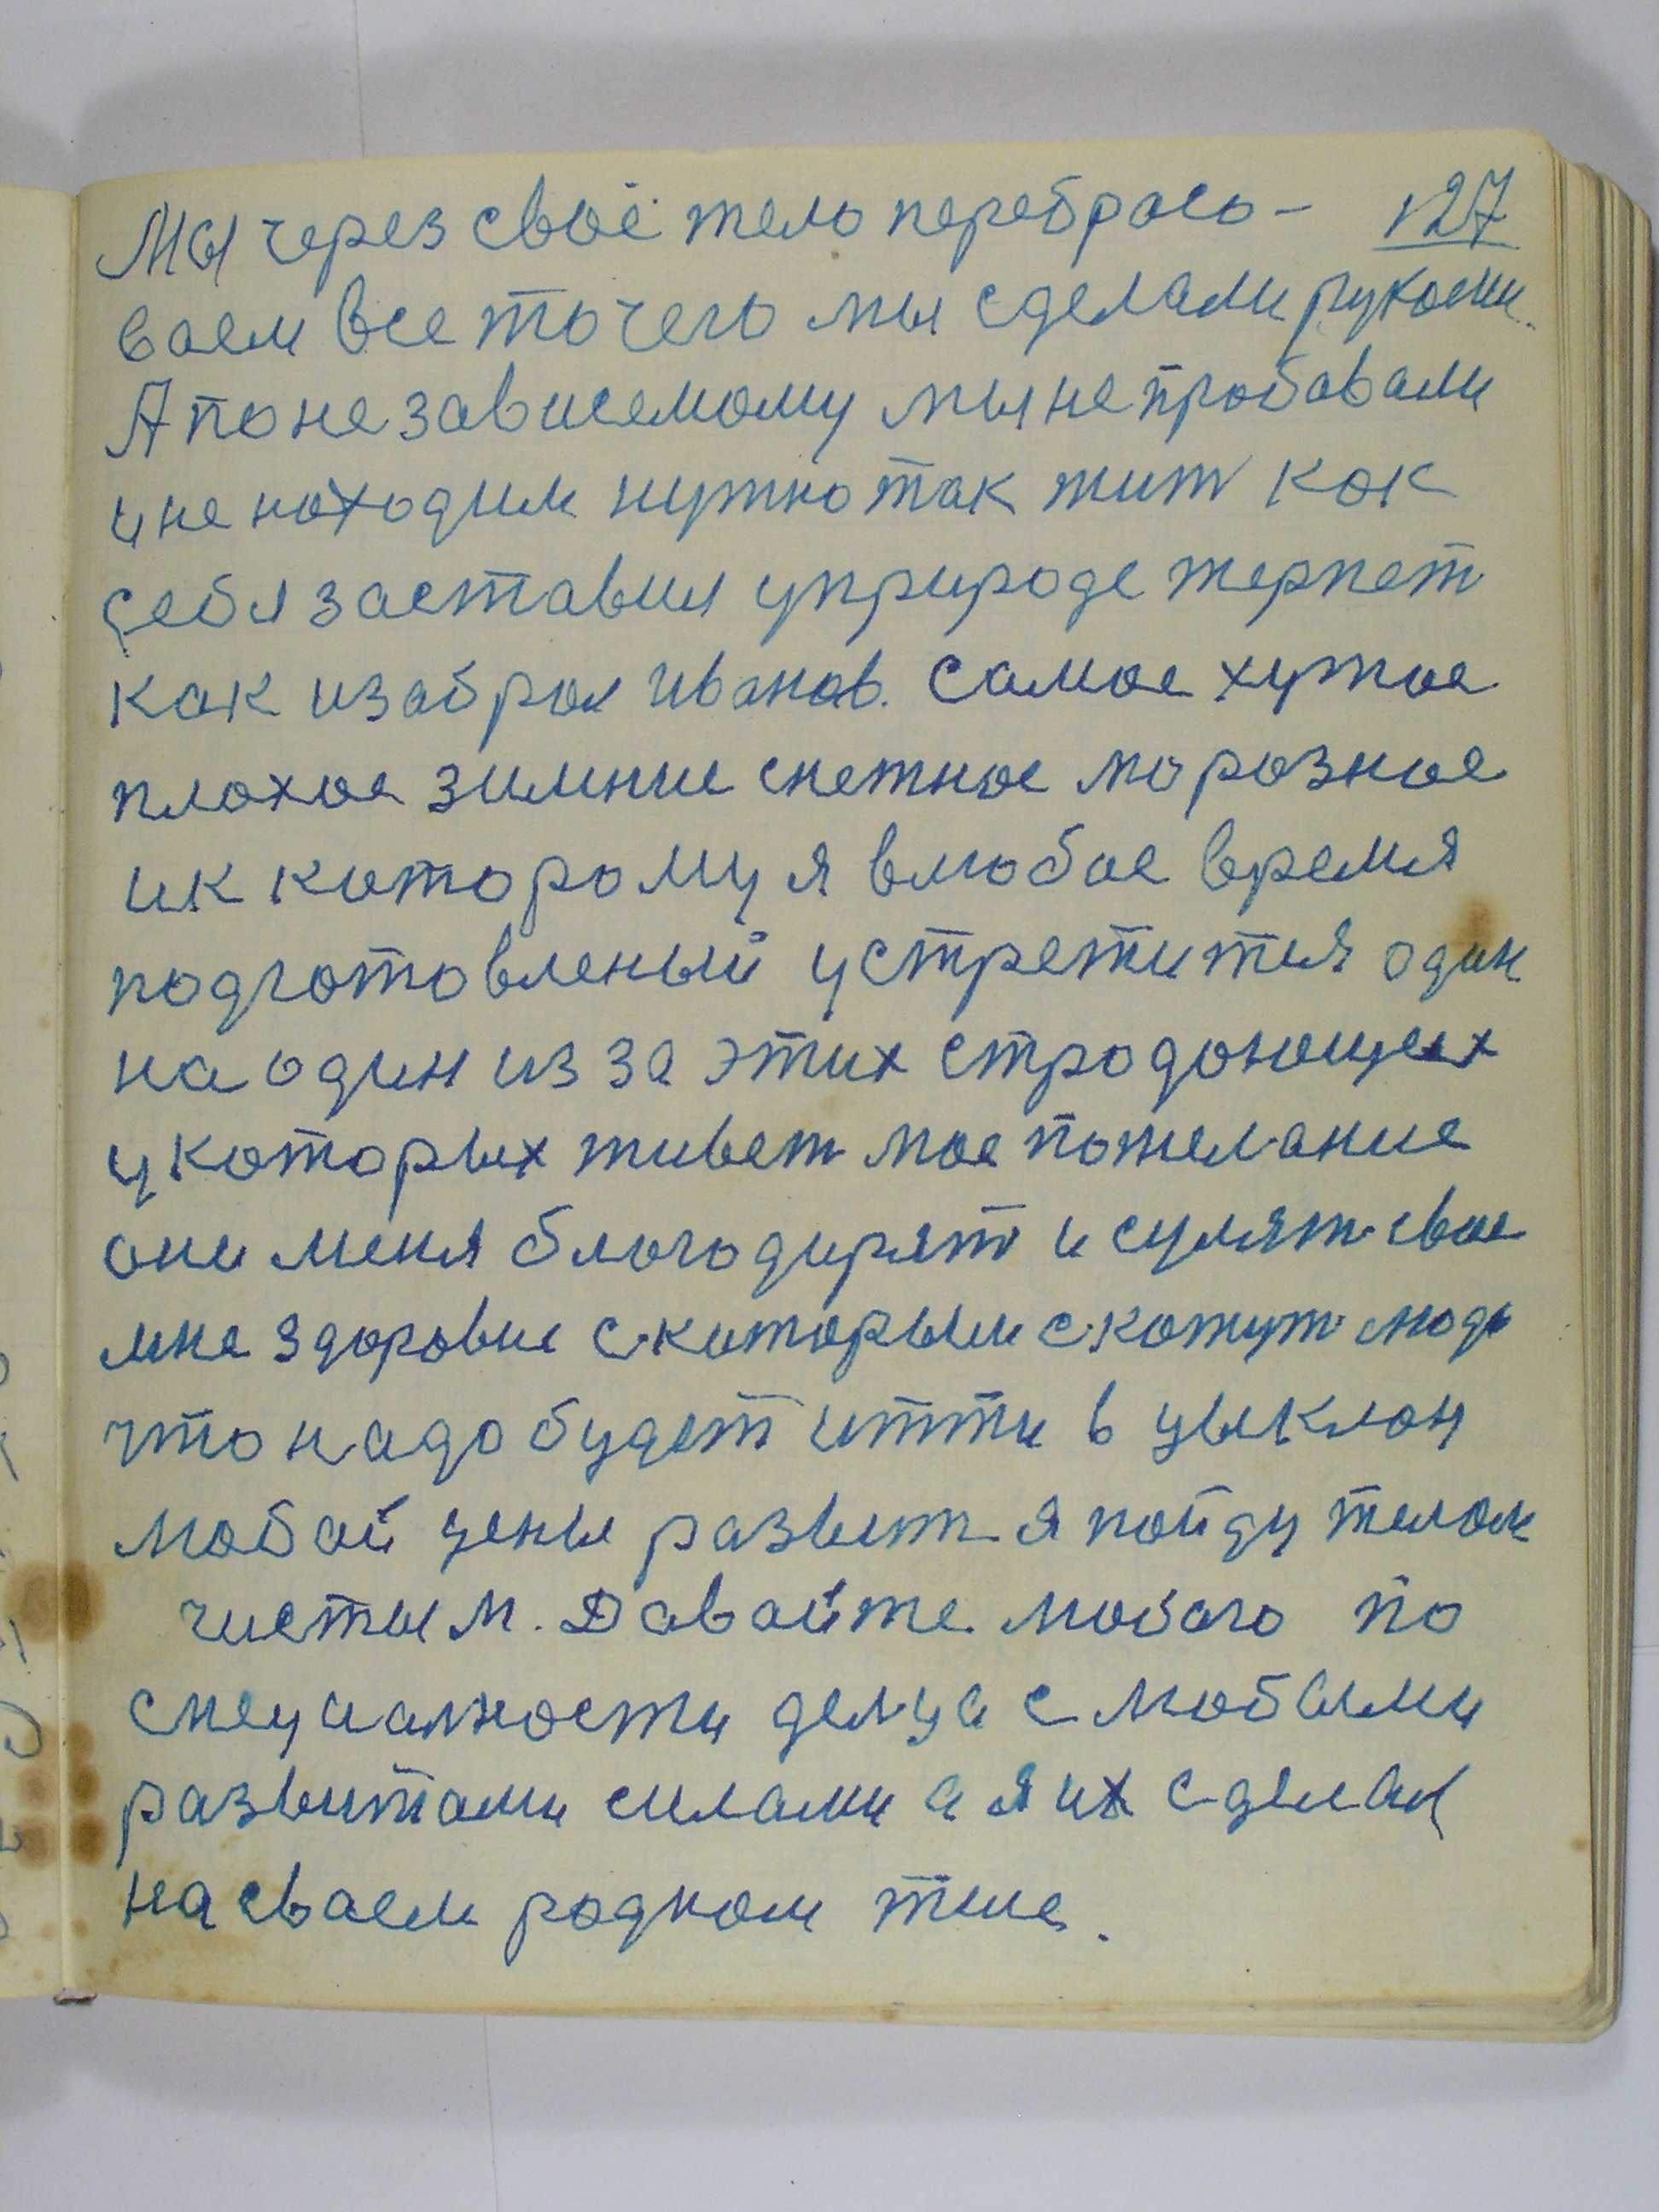 Мы через своё тело перебрасо- 127
ваем все то чего мы сделали руками.
А по не зависемому мы не пробавали
и не находим нужно так жит как
себя заставил у природе терпет
как изабрал Иванов. Самое хутое
плохое зимние снежное морозное
и к которому я влюбое время
подготовленый устретится один
на один из за этих страдающих
у которых живет мое пожелание
они меня благодарят и сулят свое
мне здоровие с которым скажут люди
что надо будет итти в цыклон
любой цены развит я пойду телом
чистым. Давайте любого по
специалности делца с любыми
развитами силами а я их сделаю
на сваем родном теле.